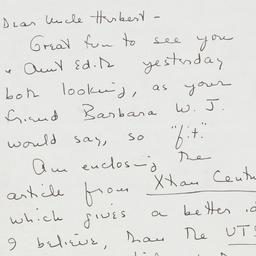 Dear Uncle Herbert -
Great fun to see you
& Aunt Edith yesterday
both looking, as your
friend Barbara W. J.
would say, so "fit."
Am enclosing the
article from Xtian Centu
which gives a better id
I believe, than the UTS